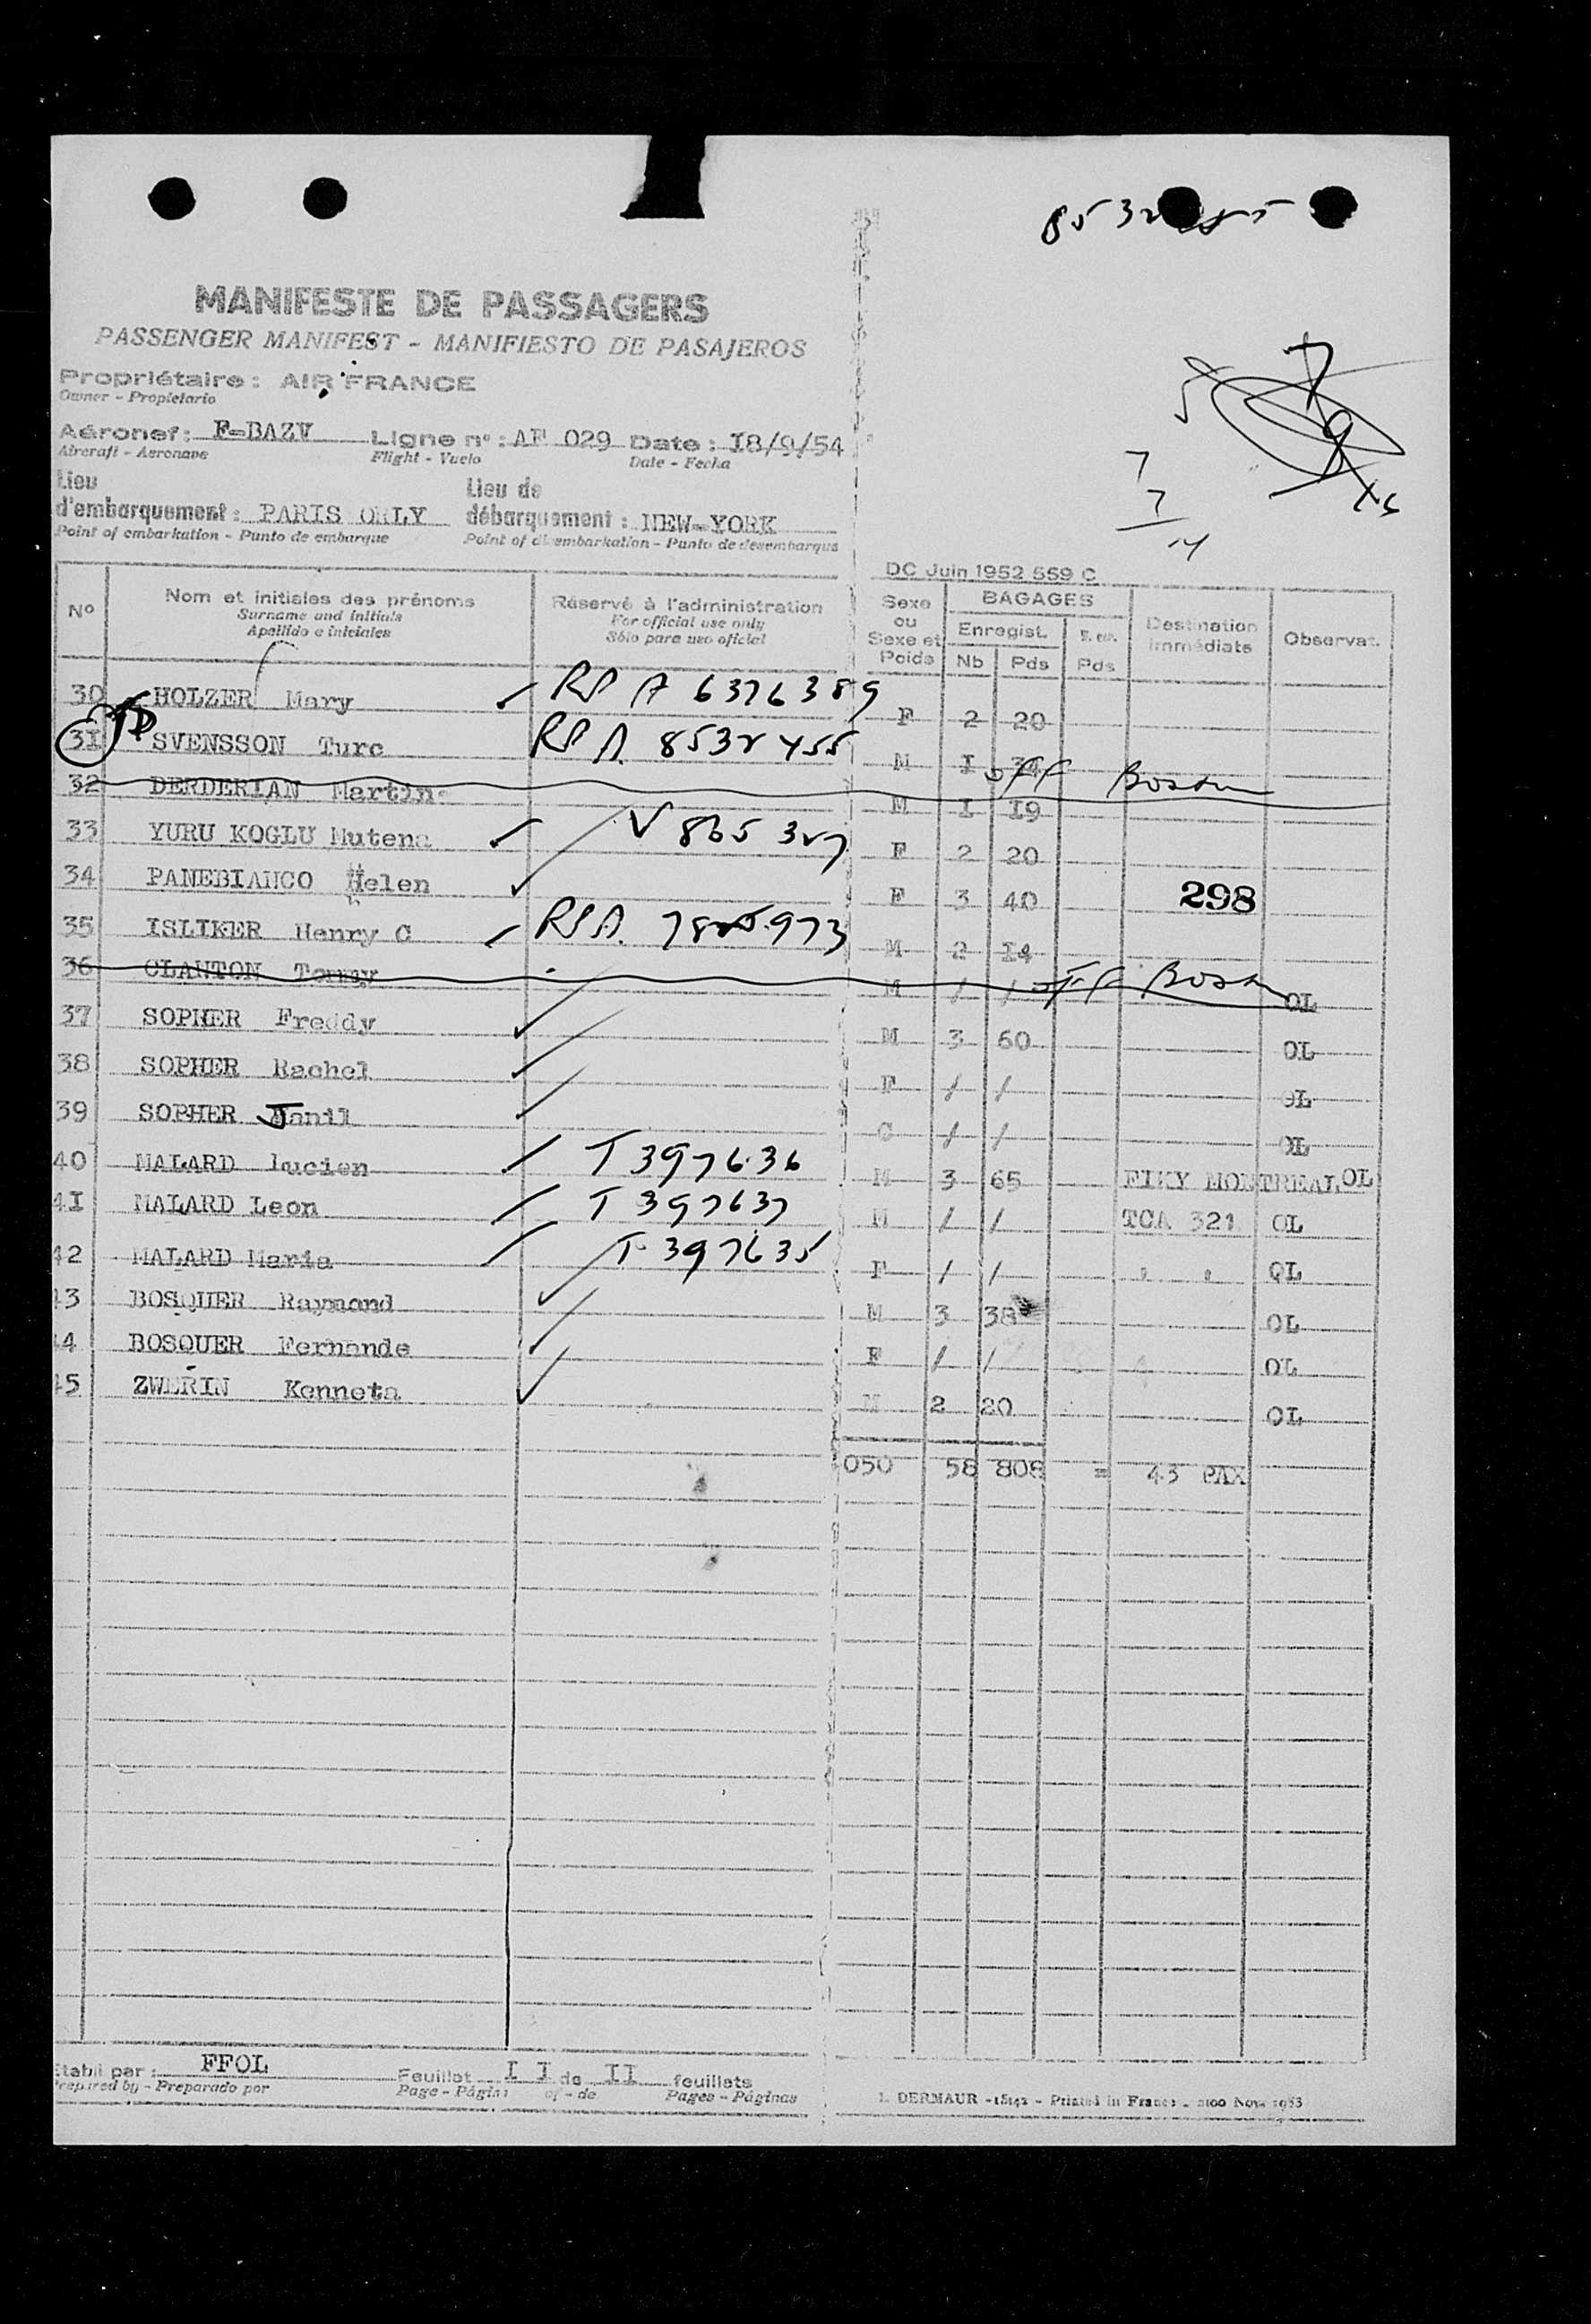 MANIFESTE DE PASSAGERS
PASSENGER MANIFEST - MANIFIESTO DE PASAJEROS
Propriétaire : AIR FRANCE
Owner - Propietario
Aéronef : F-BAZV Ligne n° : AF 029 Date : I8/9/54
Aircraft - Aeronave Flight - Vuelo Date - Fecha
Lieu d'embarquement : PARIS ORLY Lieu de débarquement : NEW-YORK
Point of embarkation - Punto de embarque Point of disembarkation - Punto de desembarque
DC Juin 1952 559 C
N° Nom et initiales des prénoms Réservé à l'administration Sexe ou Sexe et Poids BAGAGES Destination immédiate Observat.
Surname and initials For official use only Enregist.
Apellido e iniciales Sólo para uso oficial Nb Pds Pds
30 HOLZER Mary RP A 6376389 F 2 20
31 SVENSSON Ture RP A. 8532455 M I 34
32 DERDERIAN Martin M I I9 off Boston
33 YURU KOGLU Mutena V 865 327 F 2 20
34 PANEBIANCO Helen F 3 40 298
35 ISLIKER Henry C RP A. 7825973 M 2 I4
36 CLANTON Tommy M / / off Boston OL
37 SOPHER Freddy M 3 60 OL
38 SOPHER Rachel F / / OL
39 SOPHER Janil C / / OL
40 MALARD Lucien T 397636 M 3 65 FIKY MONTREAL OL
4I MALARD Leon T 397637 M / / TCA 321 OL
42 MALARD Maria T 397635 F / / " " OL
43 BOSQUER Raymond M 3 38 OL
44 BOSQUER Fernande F / / OL
45 ZWERIN Kenneta M 2 20 OL
050 58 808 = 43 PAX
Etabli par : FFOL Feuillet I I de II feuillets
Prepared by - Preparado por Page - Página of - de Pages - Páginas